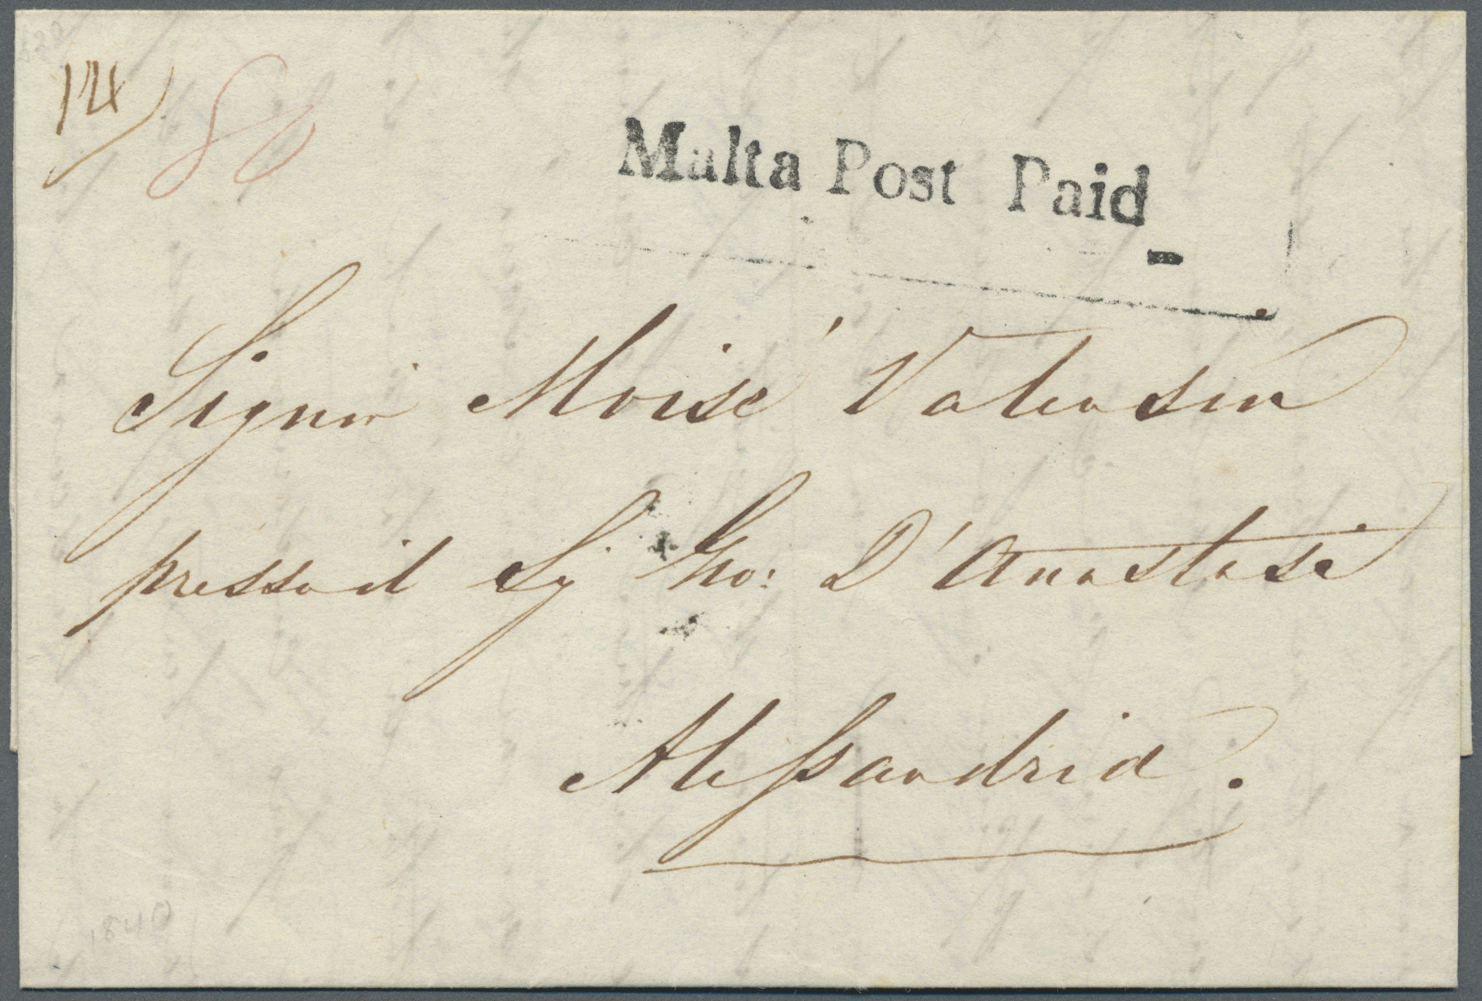 14
8d
Malta Post Paid
Signor Moisé Valensin
presso il Sig Gio: D'Anastasi
Alessandria.
1840